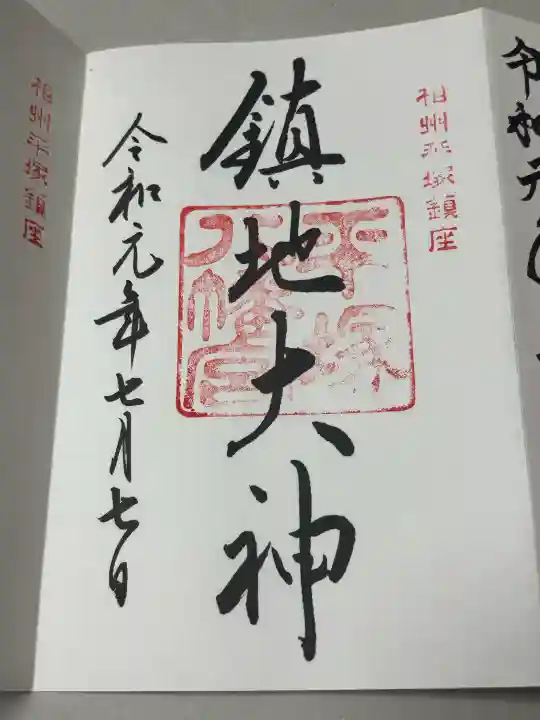 相州平塚鎮座
鎮地大神
平塚
八幡宮
令和元年七月七日
相州平塚鎮座
令和元